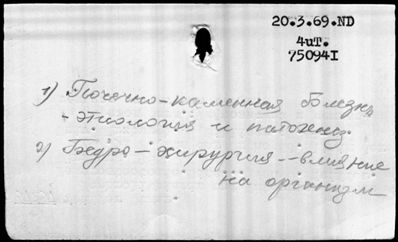 20.3.69.ND
4uT.
75094I
1) Почечно-каменная болезнь
- этиология и патогенез
2) Бедро - хирургия - влияние
на организм